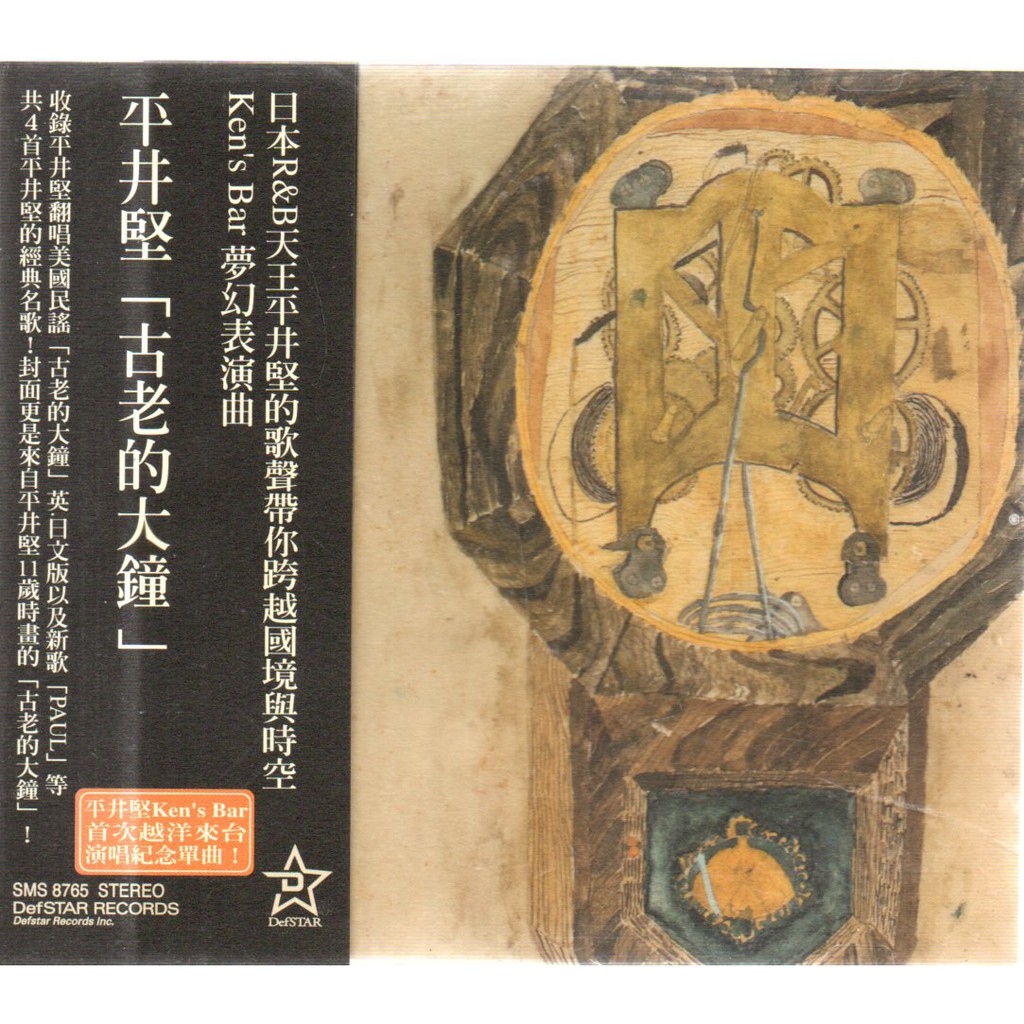 日本R&B天王平井堅的歌聲帶你跨越國境與時空
Ken's Bar 夢幻表演曲
平井堅「古老的大鐘」
收錄平井堅翻唱美國民謠「古老的大鐘」英·日文版以及新歌「PAUL」等
共4首平井堅的經典名歌！封面更是來自平井堅11歲時畫的「古老的大鐘」！
平井堅Ken's Bar
首次越洋來台
演唱紀念單曲！
SMS 8765 STEREO
DefSTAR RECORDS
Defstar Records Inc.
D
DefSTAR